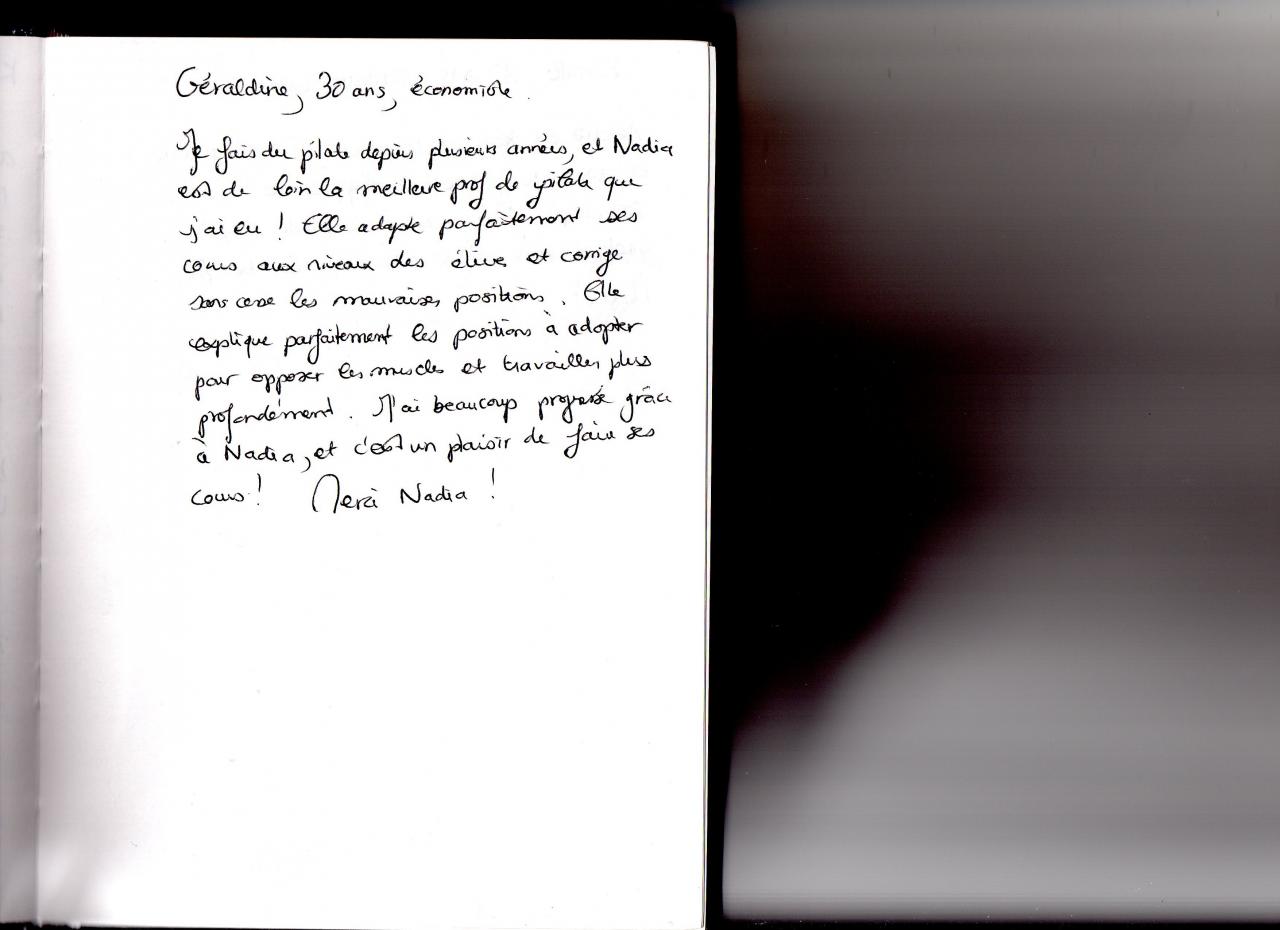 Géraldine, 30 ans, économiste.
Je fais du pilate depuis plusieurs années, et Nadia
est de loin la meilleure prof de pilate que
j'ai eu ! Elle adapte parfaitement ses
cours aux niveaux des élèves et corrige
sans cesse les mauvaises positions. Elle
explique parfaitement les positions à adopter
pour opposer les muscles et travailler plus
profondément. J'ai beaucoup progressé grâce
à Nadia, et c'est un plaisir de faire ses
cours ! Merci Nadia !